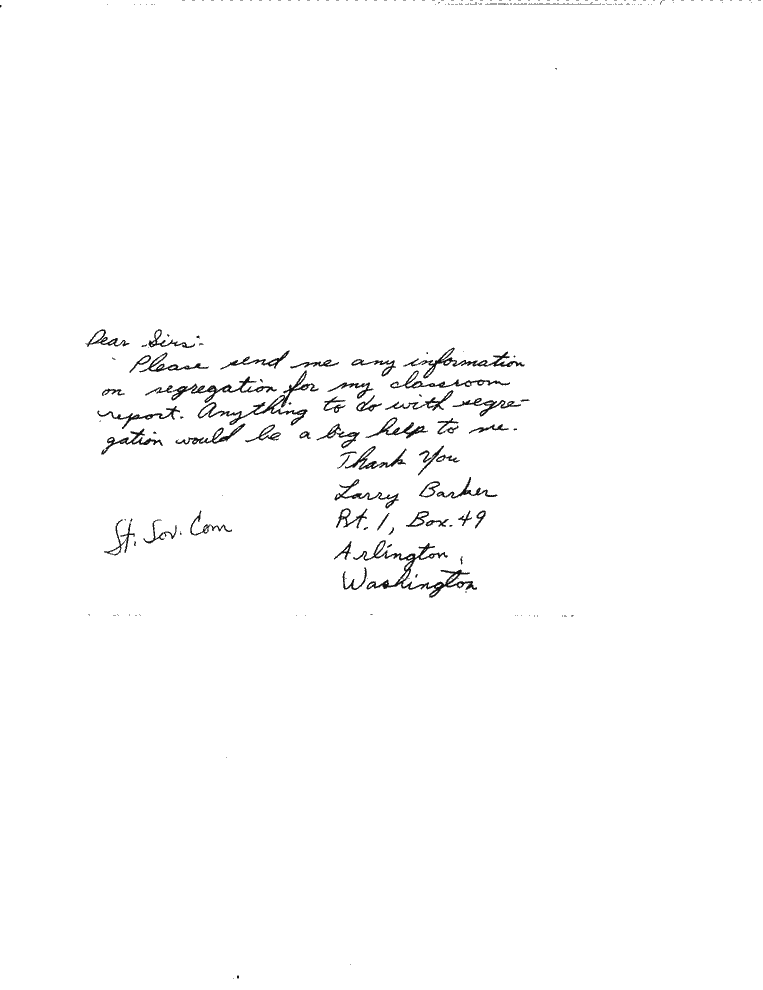 Dear Sirs:-
Please send me any information
on segregation for my classroom
report. Anything to do with segre-
gation would be a big help to me.
Thank You
Larry Barker
Rt. 1, Box. 49
Arlington,
Washington
St. Sov. Com